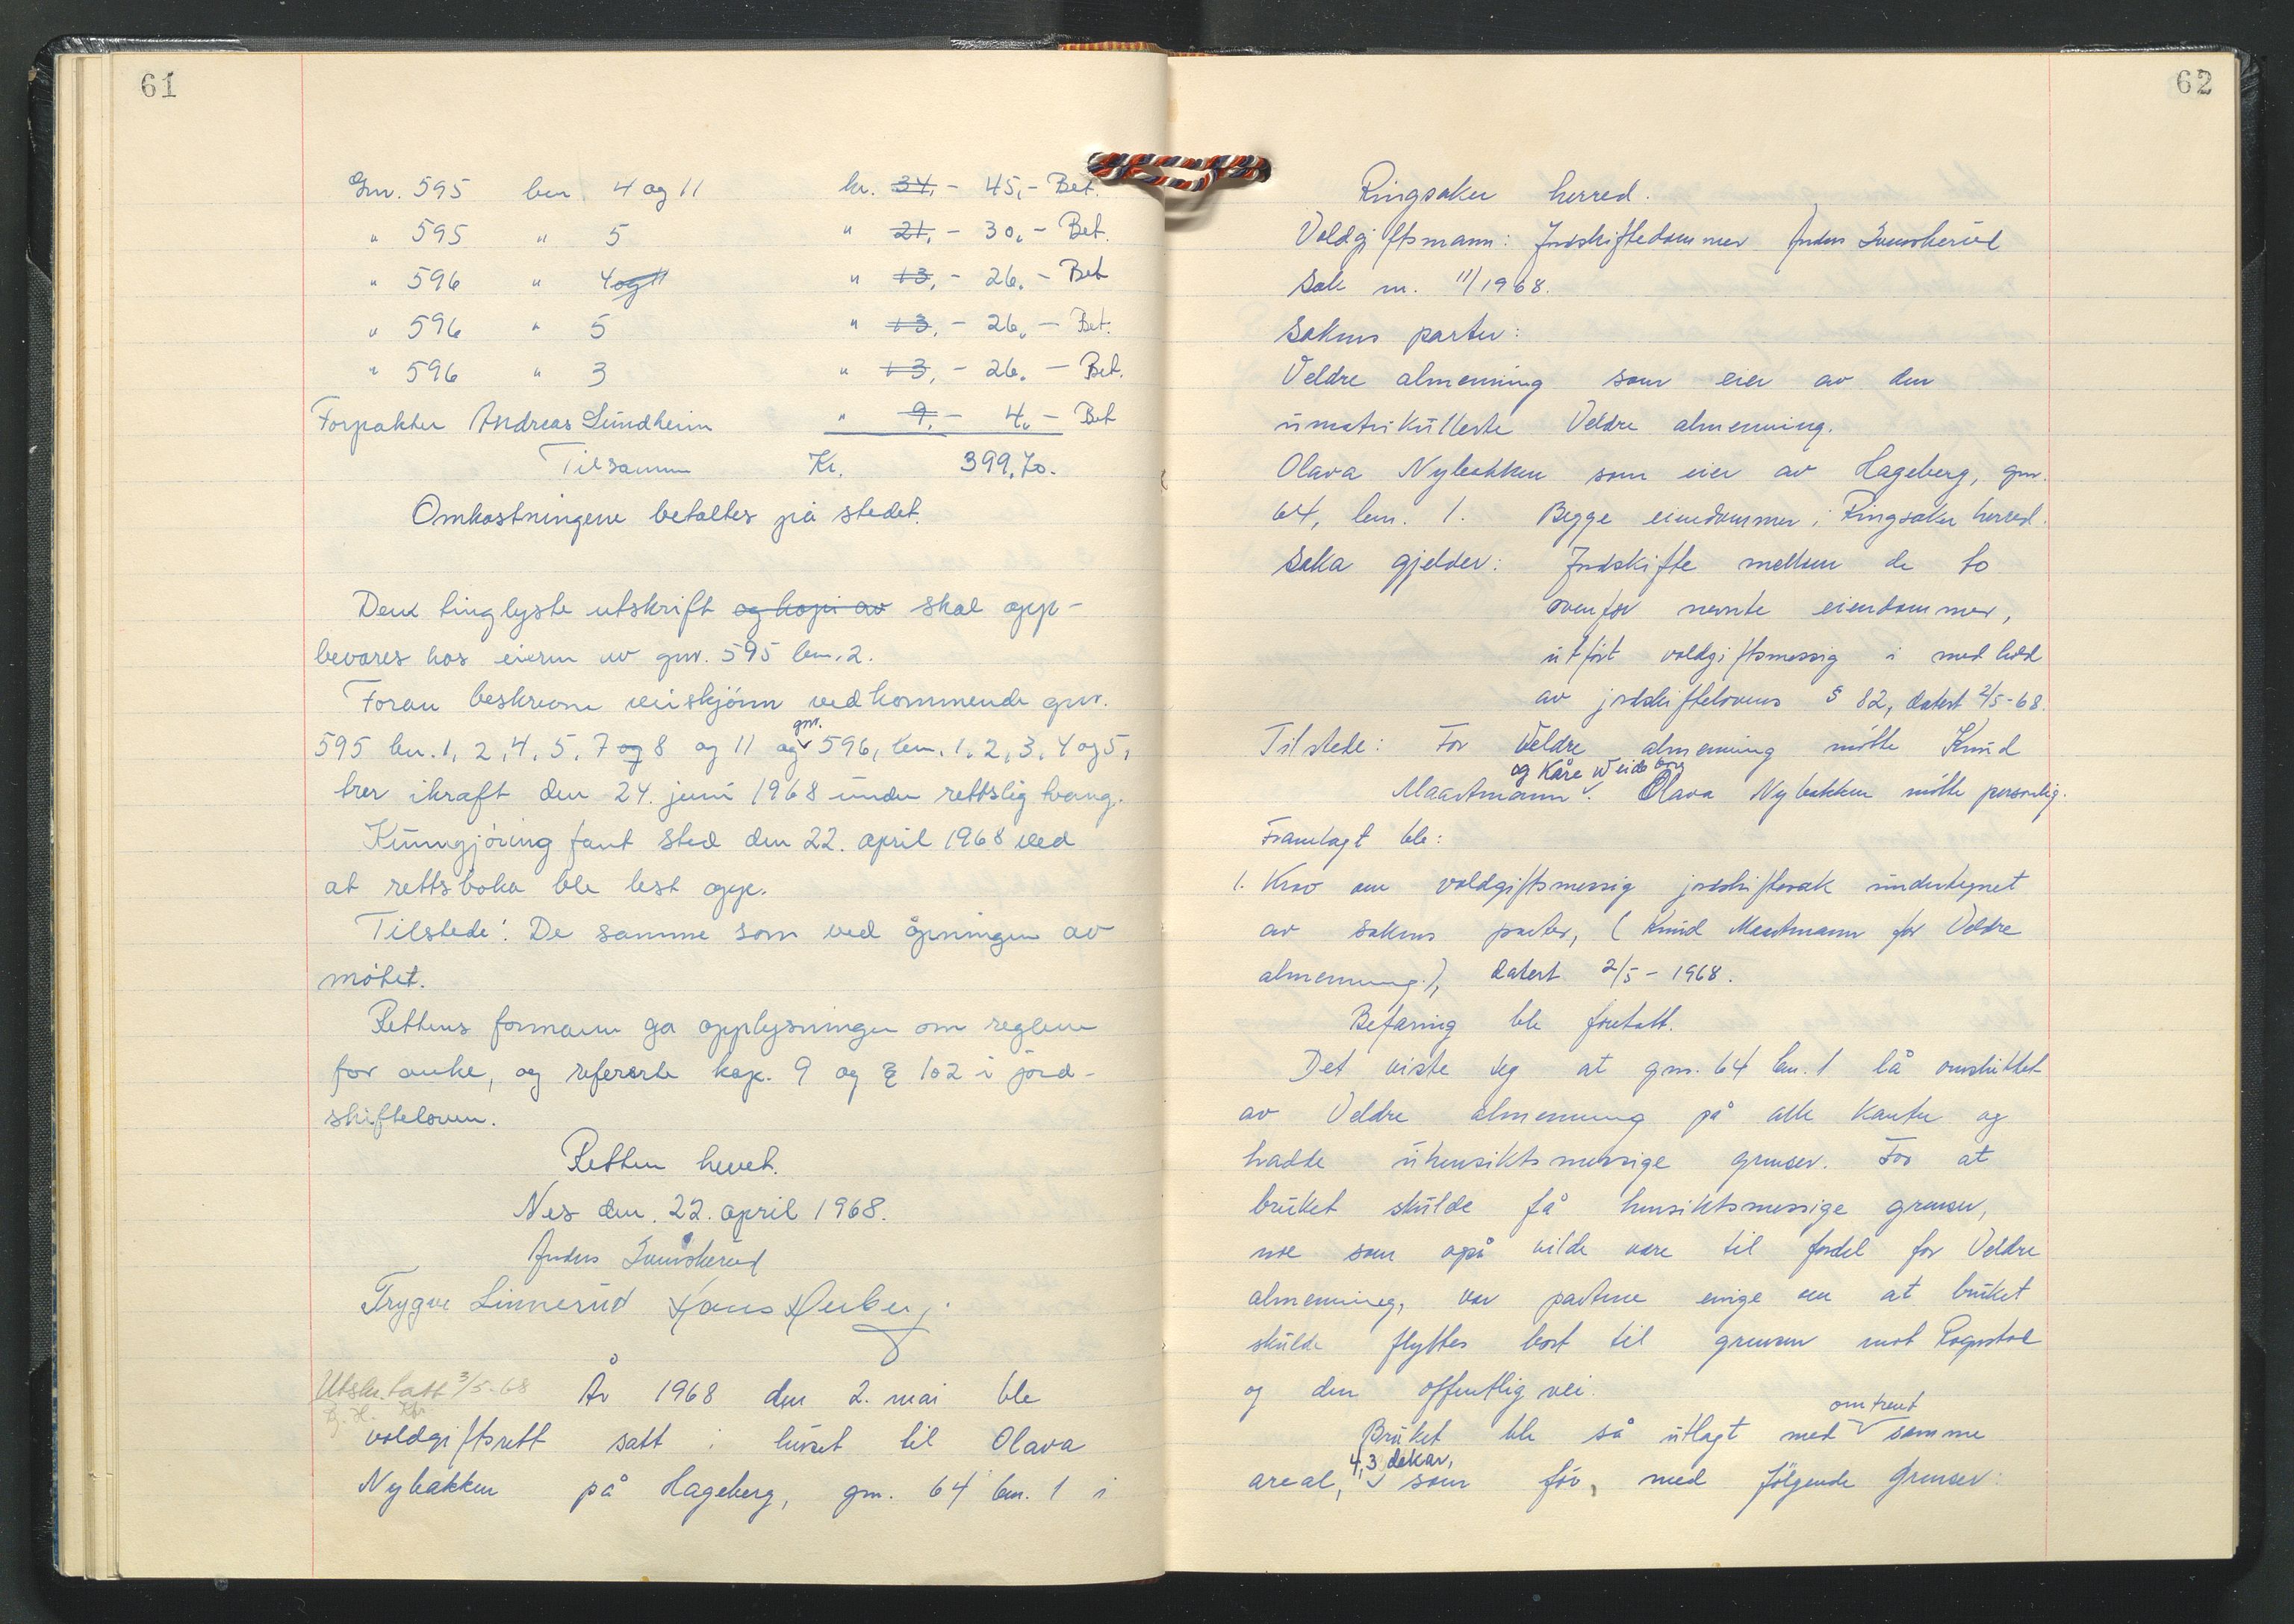 61
Gnr. 595 bnr. 4 og 11 kr. 34,- 45,- Bet.
" 595 " 5 " 21,- 30,- Bet.
" 596 " 4 og 11 " 13,- 26,- Bet
" 596 " 5 " 13,- 26,- Bet.
" 596 " 3 " 13,- 26,- Bet.
Forpakter Andreas Sundheim " 9,- 4,- Bet
Tilsammen Kr. 399,70.
Omkostningene betaltes på stedet.
Den tinglyste utskrift og kopi av skal opp-
bevares hos eieren av gnr. 595 bnr. 2.
Foran beskrevne veiskjønn vedkommende gnr.
gnr.
595 bnr. 1, 2, 4, 5, 7 og 8 og 11 og 596, bnr. 1, 2, 3, 4 og 5,
trer ikraft den 24. juni 1968 under rettslig tvang.
Kunngjøring fant sted den 22. april 1968 ved
at rettsboka ble lest opp.
Tilstede: De samme som ved åpningen av
møtet.
Rettens formann ga opplysninger om reglene
for anke, og refererte kap. 9 og § 102 i jord-
skifteloven.
Retten hevet.
Nes den. 22. april 1968.
Anders
Trygve Linnerud Hans
Utskr. tatt 3/5-68
År 1968 den 2. mai ble
voldgiftsrett satt i huset til Olava
Nybakken på Hageberg, gnr. 64 bnr. 1 i
62
Ringsaker herred.
Voldgiftsmann: Jordskiftedommer Anders
Sak nr. 11/1968.
Sakens parter:
Veldre almenning som eier av den
umatrikulerte Veldre almenning.
Olava Nybakken som eier av Hageberg, gnr.
64, bnr. 1. Begge eiendommer i Ringsaker herred.
Saka gjelder: Jordskifte mellem de to
ovenfor nevnte eiendommer,
utført voldgiftsmessig i medhold
av jordskiftelovens § 82, datert 2/5-68.
Tilstede: For Veldre almenning møtte Knud
og Kåre Weideborg
Maartmann. Olava Nybakken møtte personlig.
Framlagt ble:
1. Krav om voldgiftsmessig jordskiftesak undertegnet
av sakens parter, (Knud Maartmann for Veldre
almenning.), datert 2/5-1968.
Befaring ble foretatt.
Det viste seg at gnr. 64 bnr. 1 lå omsluttet
av Veldre almenning på alle kanter og
hadde uhensiktsmessige grenser. For at
bruket skulde få hensiktsmessige grenser,
noe som også vilde være til fordel for Veldre
almenning, var partene enige om at bruket
skulde flyttes bort til grensen mot
og den offentlig vei.
omtrent
Bruket ble så utlagt med samme
4,3 dekar,
areal, som før, med følgende grenser: